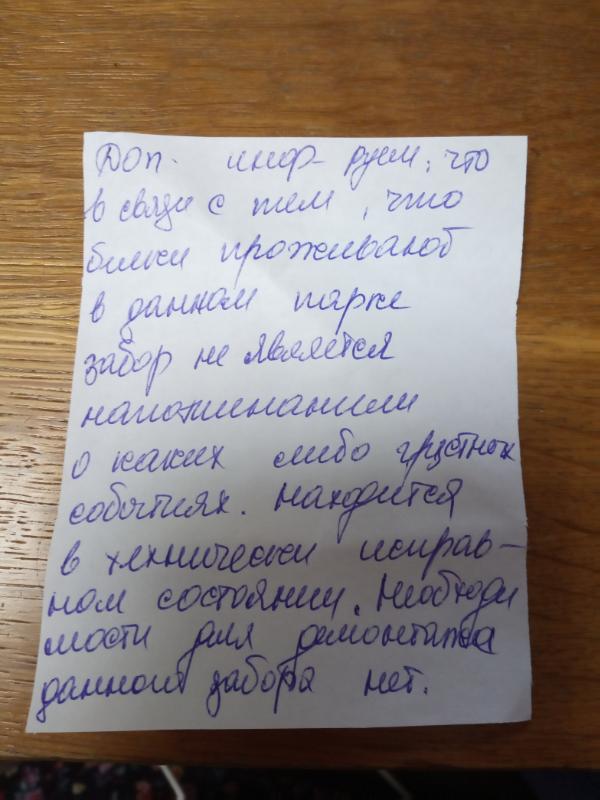 Доп. инф-руем, что
в связи с тем, что
белки проживают
в данном парке
забор не является
напоминанием
о каких либо грустных
событиях. Находится
в технически исправ-
ном состоянии. Необходи
мости для демонтажа
данного забора нет.